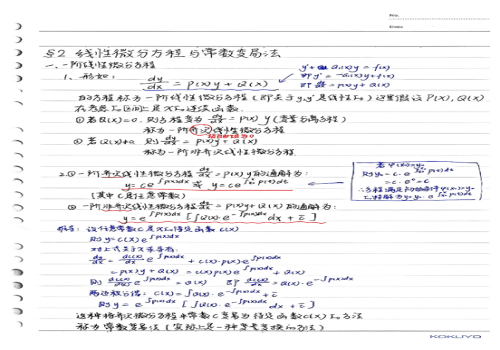 No.
Date
§2 线性微分方程与常数变易法
一、一阶线性微分方程
y'+a₁(x)y=f(x)
1、形如: dy/dx = P(x)y+Q(x)
即 y'=-a₁(x)y+f(x)
即 dy/dx = p(x)y+Q(x)
的方程称为一阶线性微分方程(即关于y,y'是线性的)这里假设P(x),Q(x)
在考虑的区间上是x的连续函数.
①若Q(x)=0. 则方程变为 dy/dx = P(x)y (变量分离方程)
称为一阶齐次线性微分方程
②若Q(x)≠0 则 dy/dx = p(x)y+Q(x)
称为一阶非齐次线性微分方程.
2.①一阶齐次线性微分方程 dy/dx = P(x)y 的通解为:
y=ce^∫p(x)dx 或 y=ce^∫p(t)dt
(其中C是任意常数)
②一阶非齐次线性微分方程 dy/dx = P(x)y+Q(x)的通解为:
y=e^∫p(x)dx [∫Q(x)·e^-∫p(x)dx dx + c̃]
=c·e⁰=c
设任意常数C是x的待定函数c(x)
则 y=c(x)e^∫p(x)dx
对上式关于x求导有:
dy/dx = dc(x)/dx e^∫p(x)dx + c(x)·p(x)e^∫p(x)dx
=p(x)y+Q(x) = c(x)p(x)e^∫p(x)dx + Q(x)
则 dc(x)/dx e^∫p(x)dx = Q(x) 即 dc(x)/dx = Q(x)·e^-∫p(x)dx
两边积分得: c(x)=∫Q(x)·e^-∫p(x)dx dx + c̃
则 y=e^∫p(x)dx [∫Q(x)·e^-∫p(x)dx dx + c̃]
这种将齐次微分方程中常数C变易为待定函数c(x)的方法
称为常数变易法 (实际上是一种变量变换的方法)
KOKUYO